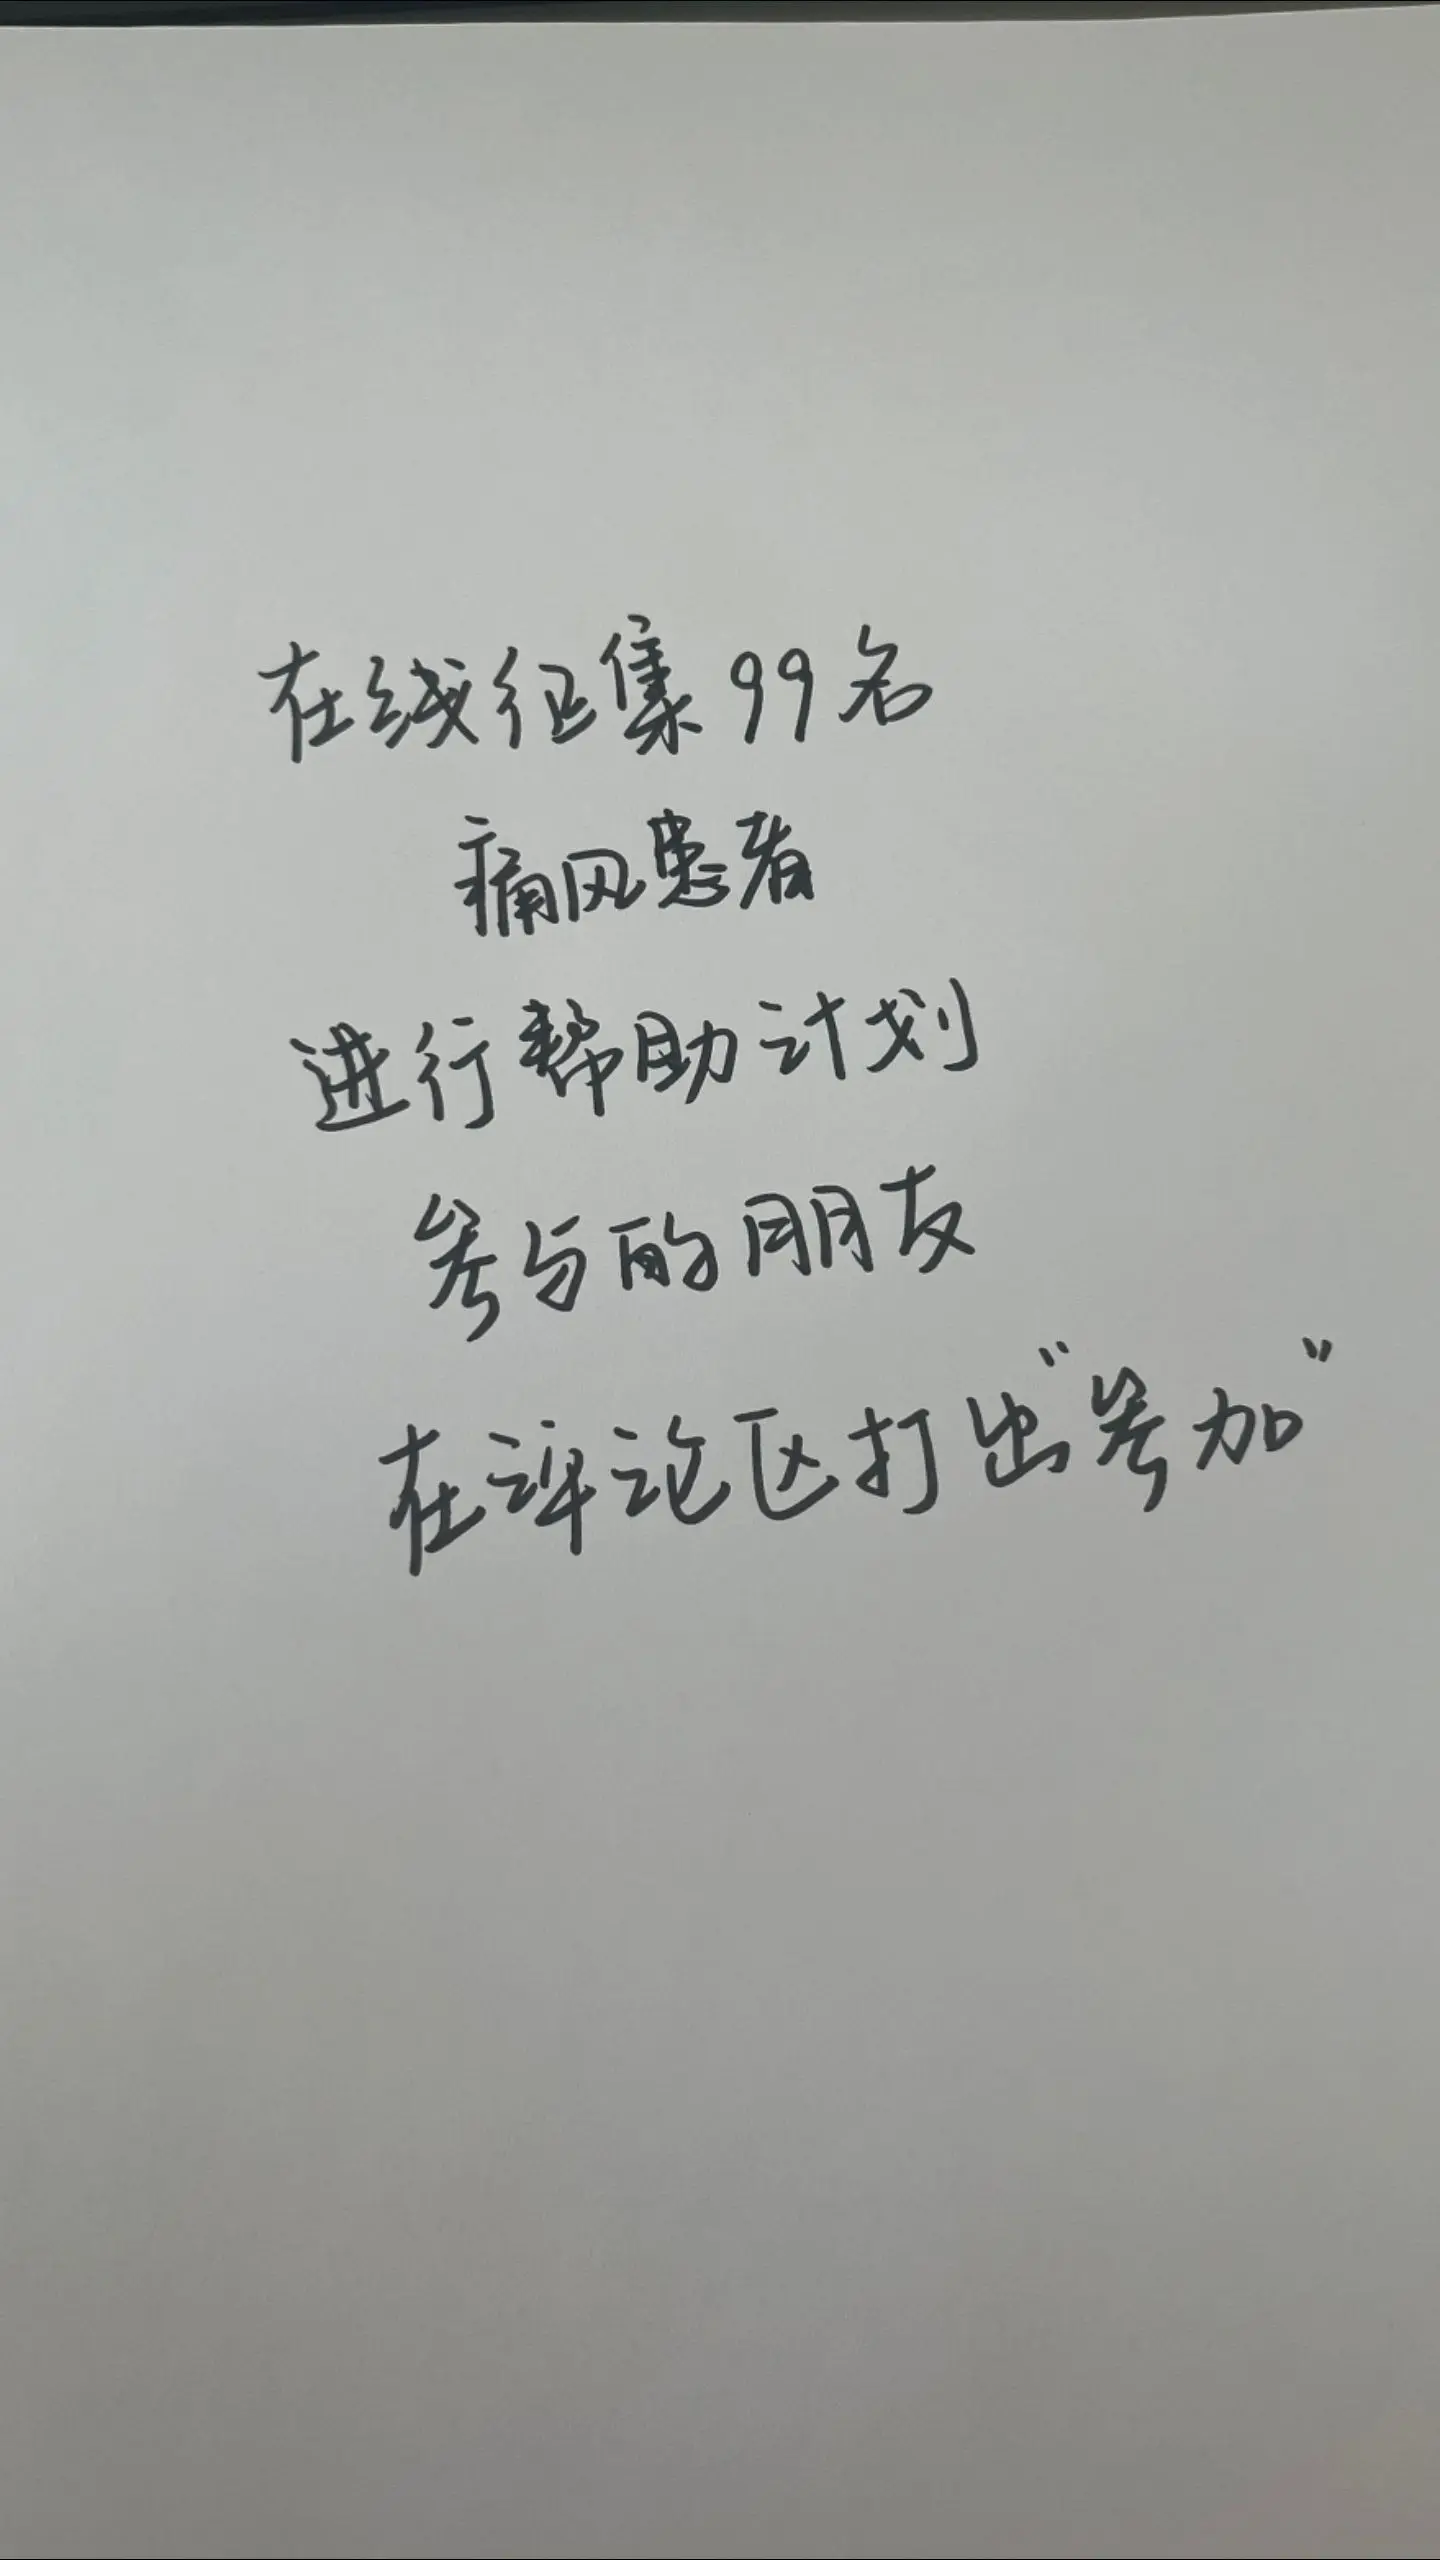 在线征集99名
痛风患者
进行帮助计划
参与的朋友
在评论区打出“参加”